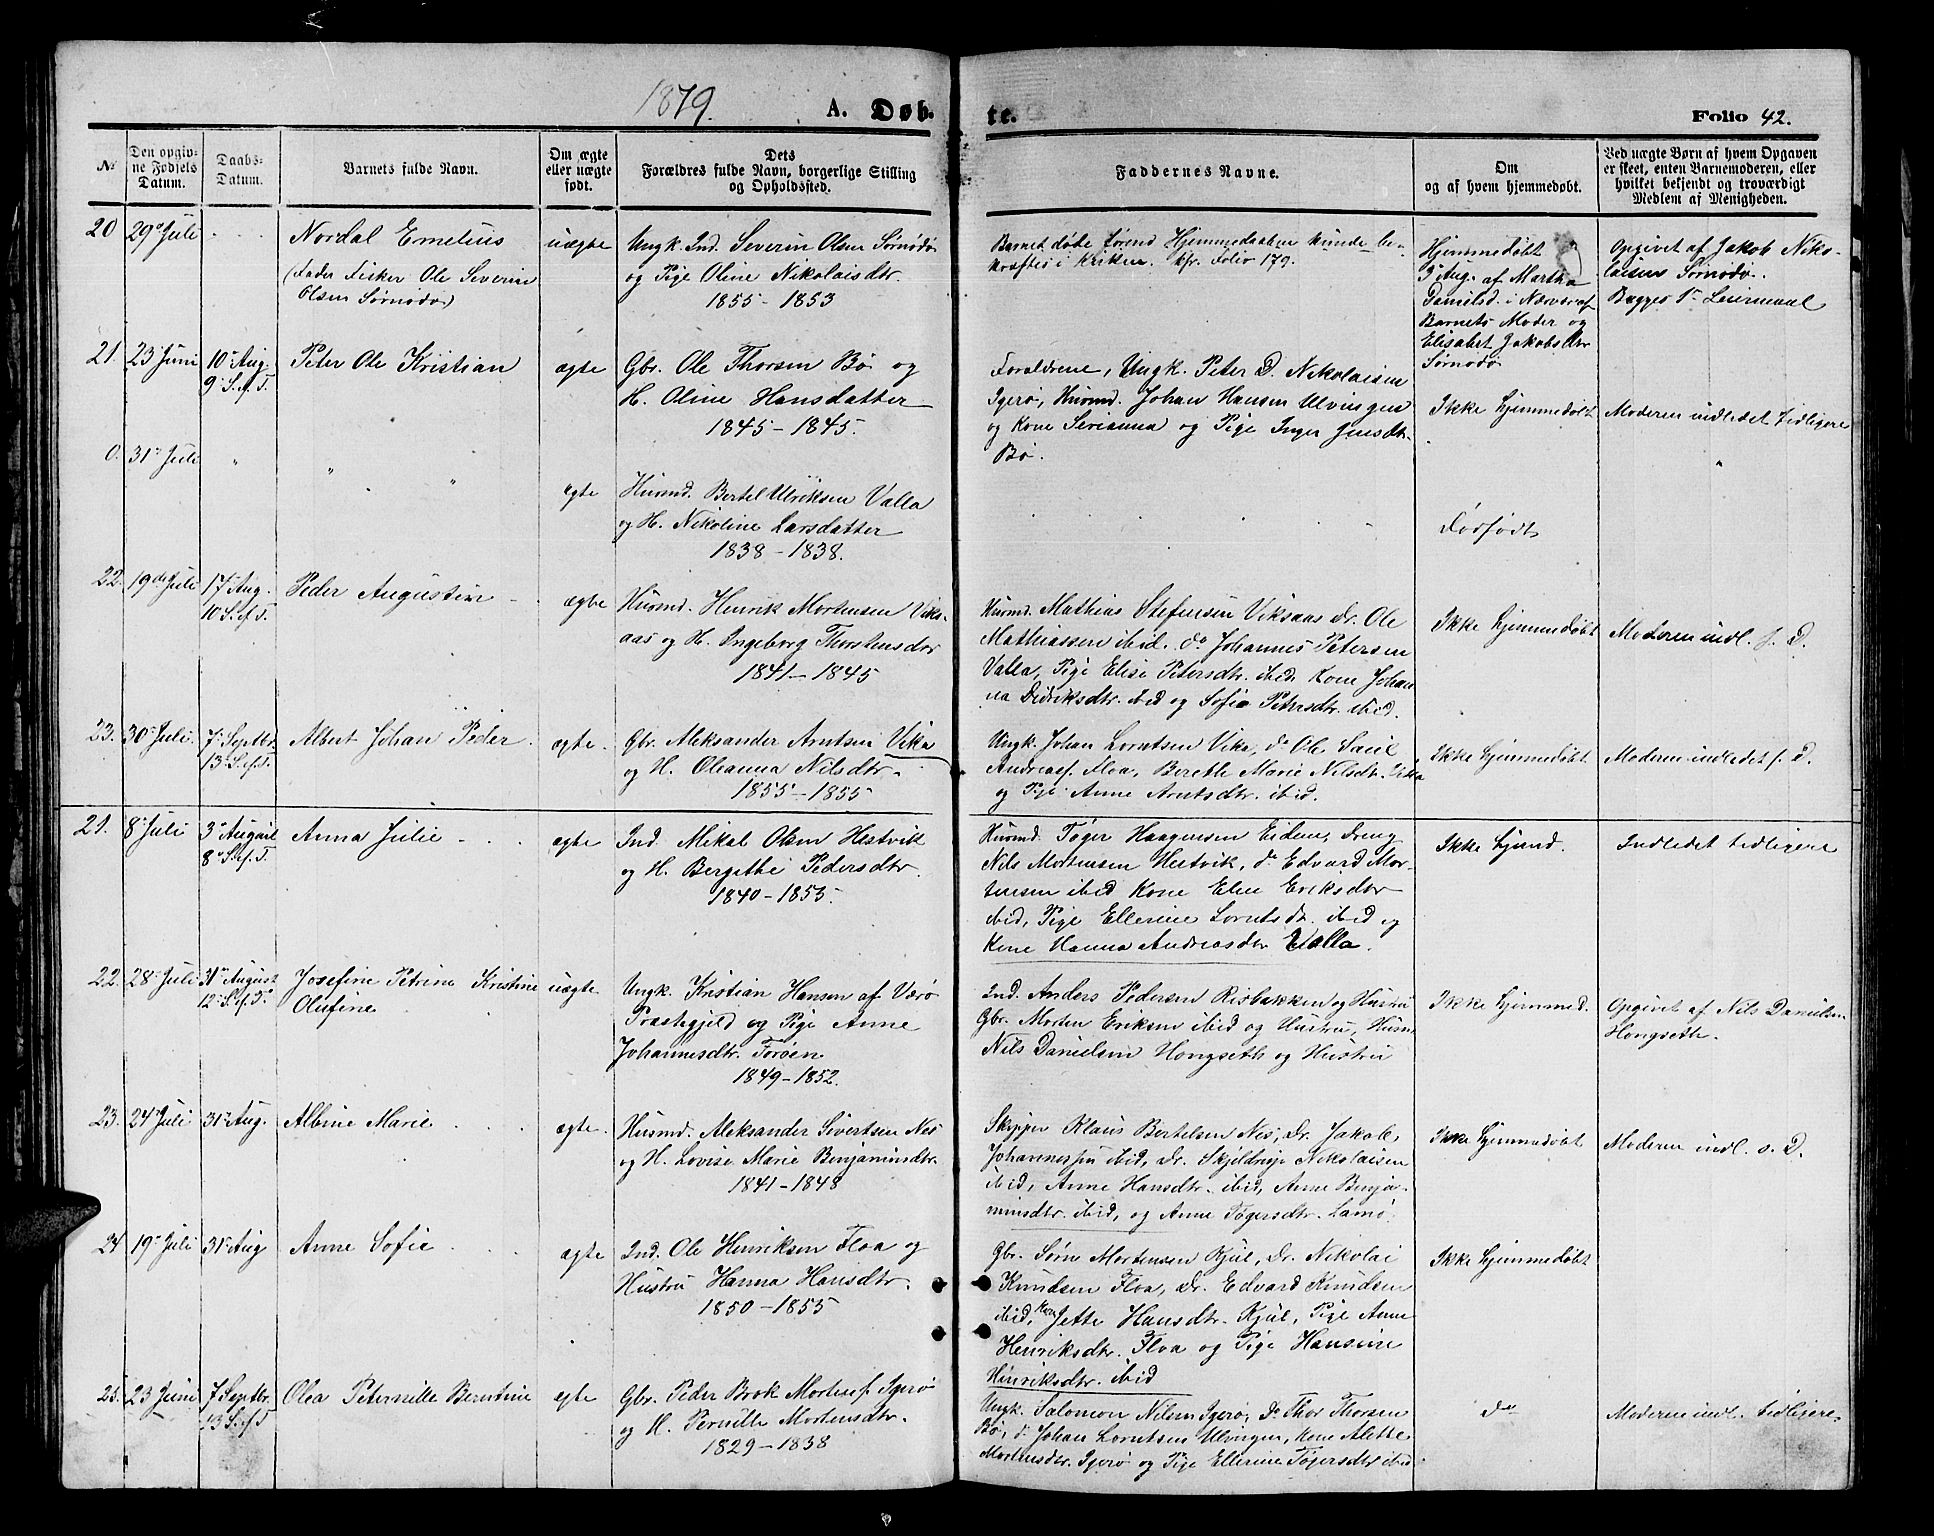 1879.
A. Døb-
te.
Folio 42.
№
Den opgiv-
ne Fødsels
Datum.
Daabs-
Datum.
Barnets fulde Navn.
Om ægte
eller uægte
født.
Dets
Forældres fulde Navn, borgerlige Stilling
og Opholdssted.
Faddernes Navne.
Om
og af hvem hjemmedøbt.
Ved uægte Børn af hvem Opgaven
er skeet, enten Barnemoderen, eller
hvilket bekjendt og troværdigt
Medlem af Menigheden.
20 29 Juli
Nordal Ernelius
(Fader Fisker Ole Severin
Olsen Sørnodø)
uægte
Ungk. Ind. Severin Olsen Sørnodø
og Pige Oline Nikolaisdtr.
1855 - 1853
Barnet døde førend Hjemmedaaben kunde be-
kræftes i Kirken. kfr. Folio 179.
Hjemmedøbt
Aug. af Martha
Danielsd. i Nærvær af
Barnets Moder og
Elisabet Jakobsdtr
Sørnodø
Opgivet af Jakob Niko-
laisen Sørnodø.
Begges 1ste Leiermaal
21. 23 Juni
10 Aug.
9 S. e. T.
Peter Ole Kristian
ægte
Gbr. Ole Thorsen Bø og
H. Oline Hansdatter
1845 - 1845.
Forældrene, Ungk. Peter D. Nikolaisen
Igerø, Husmd. Johan Hansen Ulvingen
og Kone Serianna og Pige Inger Jensdtr.
Bø.
Ikke hjemmedøbt
Moderen indledet tidligere
0. 31 Juli
" " "
ægte
Husmd. Bertel Ulriksen Valla
og H. Nikoline Larsdatter
1838 - 1838.
Dødfødt
"
22. 19de Juli
17 Aug.
10 S. e. T.
Peder Augustin
ægte
Husmd. Henrik Mortensen Viks-
aas og H. Ingeborg Thorstensdtr
1841 - 1845
Husmd. Mathias Stefensen Viksaas Dr. Ole
Mathiassen ibid. do Johannes Petersen
Valla, Pige Elise Petersdtr. ibid. Kone Johan
na Didriksdtr. ibid og Sofie Petersdtr. ibid.
Ikke hjemmedøbt
Moderen indl. s. D.
23. 30 Juli.
7 Septbr.
13 S. e. T.
Albert Johan Peder
ægte.
Gbr. Aleksander Arntsen Vika
og H. Oleanna Nilsdtr.
1855 - 1855
Ungk. Johan Lorntsen Vika, do Ole Saul
Andreass. Floa, Berethe Marie Nilsdtr. Vika
og Pige Anne Arntsdtr. ibid.
Ikke hjemmedøbt
Moderen indledet s. D.
21. 8 Juli
3 August
8 S. e. T.
Anna Julie
ægte
Ind. Mikal Olsen Hestvik
og H. Bergithe Pedersdtr.
1840 - 1855.
Husmd. Tøger Haagensen Eidem, Dreng
Nils Mortensen Hestvik, do Edvard Mor-
tensen ibid Kone Elen Eriksdtr
ibid, Pige Ellerine Lorntsdtr. ibid og
Kone Hanna Andreasdtr Valla.
Ikke hjmd.
Indledet tidligere
22. 28 Juli
31 August
12 S. e. T.
Josefine Petrine Kristine
Olufine
uægte.
Ungk. Kristian Hansen af Værø
Præstegjeld og Pige Anne
Johannesdtr. Forøen
1849 - 1852.
Ind. Anders Pedersen Risbakken og Hustru
Gbr. Morten Eriksen ibid og Hustru, Husm.
Nils Danielsen Hongseth og Hustru
Ikke hjemmed.
Opgivet af Nils Danielsen
Hongseth.
23. 24 Juli
31 Aug.
Albine Marie
ægte.
Husmd. Aleksander Sivertsen Nes
og H. Lovise Marie Benjamindtr.
1841 - 1848
Skipper Klaus Bertelsen Nes, Dr. Jakob
Johannessen ibid, Dr. Skjeldrup Nikolaisen
ibid, Anne Hansdtr. ibid, Anne Benja-
minsdtr. ibid, og Anne Tøgersdtr. Lamø.
Ikke hjemmedøbt
Moderen indl. s. D.
24 19 Juli
31 Aug
Anne Sofie
ægte
Ind. Ole Henriksen Floa og
Hustru Hanna Hansdtr.
1850 - 1855
Gbr. Sørn Mortensen Kjul, Dr. Nikolai
Knudsen Floa, Dr. Edvard Knudsen
ibid, Kone Jette Hansdtr. Kjul, Pige Anne
Henriksdtr. Floa og Pige Hansine
Henriksdtr. ibid
Ikke hjemmedøbt
25. 23 Juni
7 Septbr.
13 S. e. T
Olea Peternille Berntine
ægte
Gbr. Peder Brok Mortens. Igerø
og H. Pernille Mortensdtr.
1829 - 1838
Ungk. Salomon Nilsen Igerø, do Thor Thorsen
Bø, d. Johan Lorntsen Ulvingen, Kone Alette
Mortensdtr. Igerø og Pige Ellerine Tøgersdtr ibid
do
Moderen indl. tidligere.